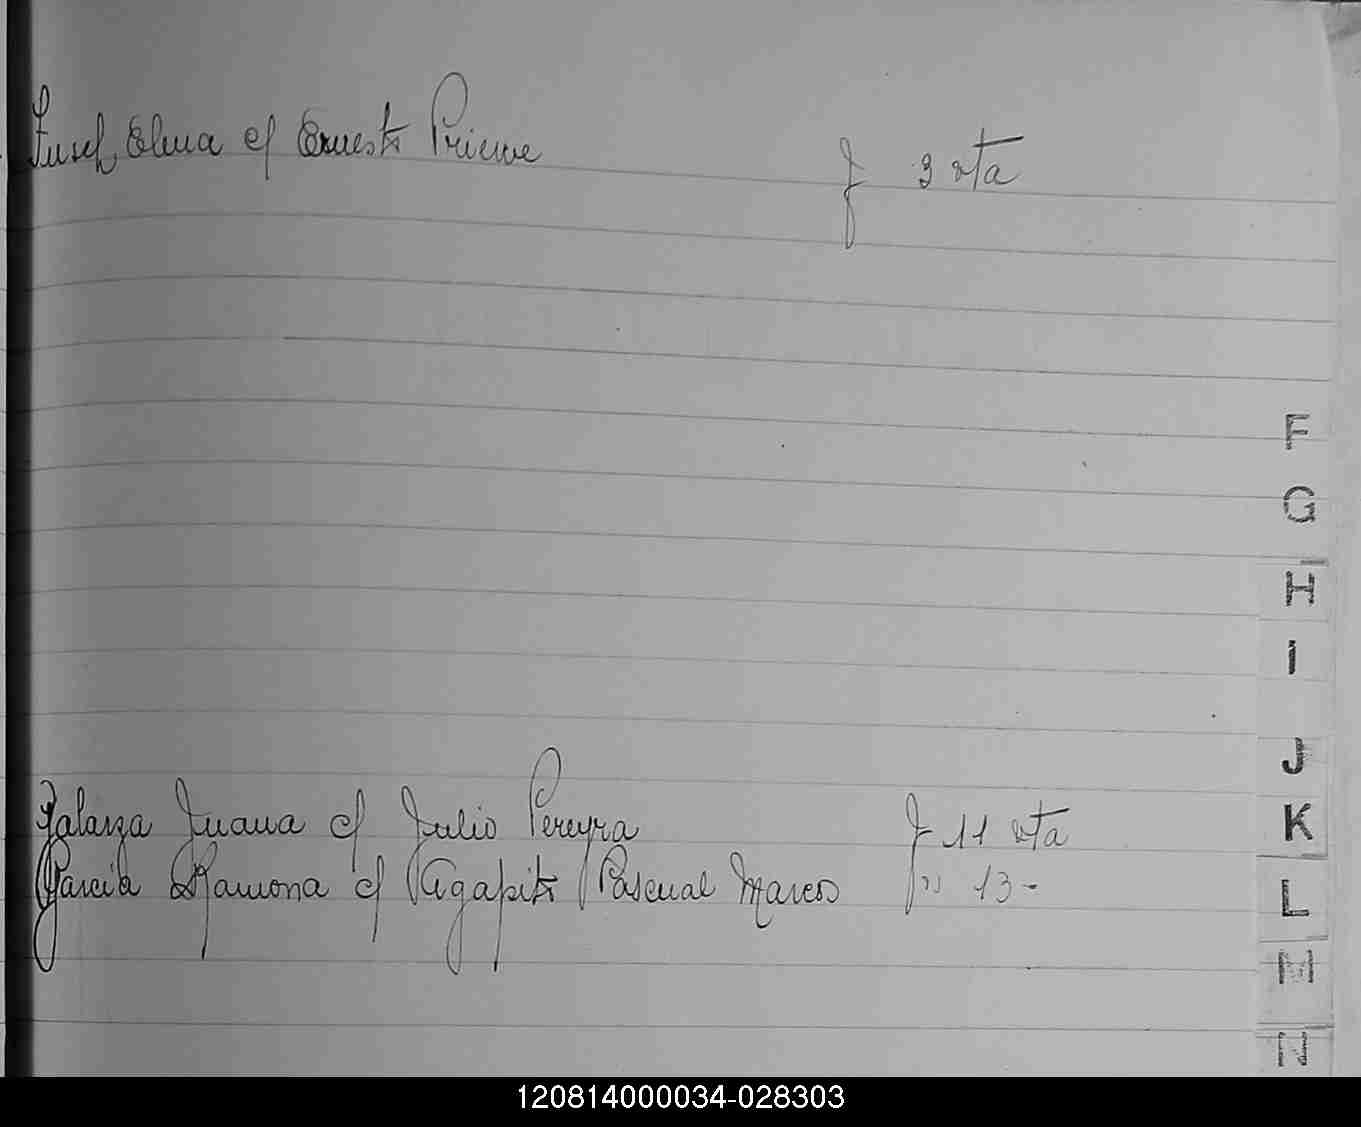 Fusch Elma c/ Ernesto Priewe f 3 vta
F
G
H
I
J
Galarza Juana c/ Julio Pereyra f 11 vta
K
Garcia Ramona c/ Agapito Pascual Marcos f" 13-
L
M
N
120814000034-028303